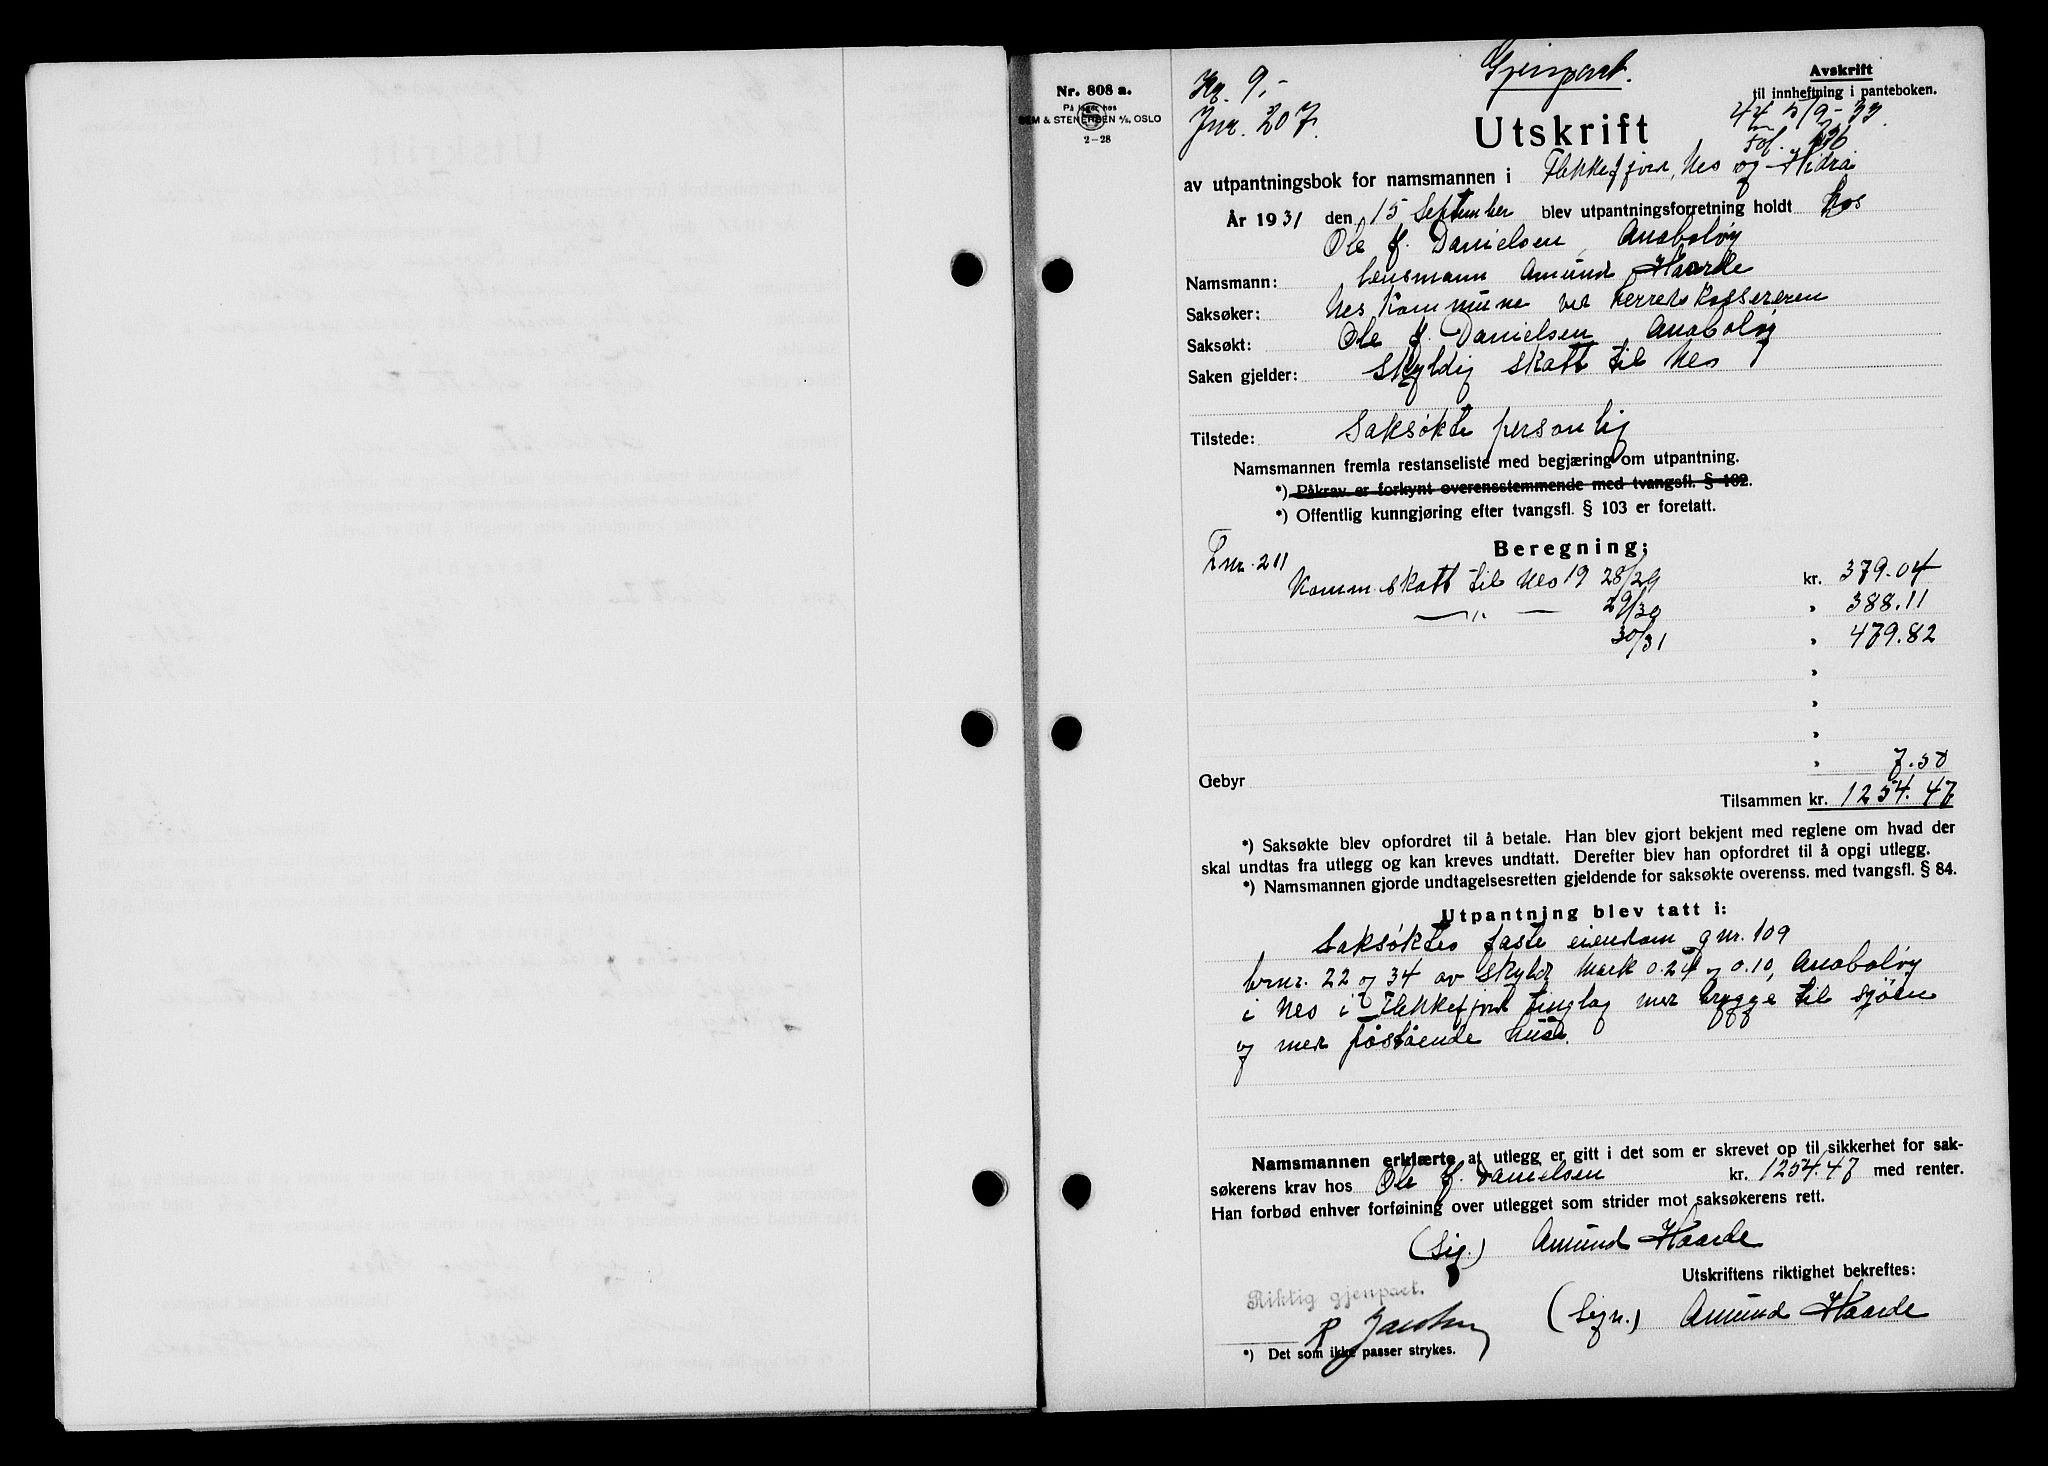 Nr. 808 a.
På lager hos
SEM & STENERSEN A/S, OSLO
2-28
Kr. 9,-
Jnr. 207.
Gjenpart.
Avskrift
til innheftning i panteboken.
Utskrift
av utpantningsbok for namsmannen i Flekkefjord, Nes og Hidra
År 1931 den 15 September blev utpantningsforretning holdt hos
Ole J. Danielsen Anabeløy
Namsmann: Lensmann Amund Haarde
Saksøker: Nes Kommune ved herredskassereren
Saksøkt: Ole J. Danielsen Anabeløy
Saken gjelder: Skyldig skatt til Nes
Tilstede: Saksøkte personlig
Namsmannen fremla restanseliste med begjæring om utpantning.
*) Påkrav er forkynt overensstemmende med tvangsfl. § 102.
*) Offentlig kunngjøring efter tvangsfl. § 103 er foretatt.
Beregning:
Lnr. 211
Komm. skatt til Nes 19 28/29 kr. 379.04
—„— 29/30 " 388.11
30/31 " 479.82
"
"
"
Gebyr " 7.50
Tilsammen kr. 1254.47
*) Saksøkte blev opfordret til å betale. Han blev gjort bekjent med reglene om hvad der
skal undtas fra utlegg og kan kreves undtatt. Derefter blev han opfordret til å opgi utlegg.
*) Namsmannen gjorde undtagelsesretten gjeldende for saksøkte overenss. med tvangsfl. § 84.
Utpantning blev tatt i:
Saksøktes faste eiendom gnr. 109
brnr. 22 og 34 av skyld mark 0.24 og 0.10, Anabeløy
i Nes i Flekkefjord tinglag med brygge til sjøen
og med påstående huse.
Namsmannen erklærte at utlegg er gitt i det som er skrevet op til sikkerhet for sak-
søkerens krav hos Ole J. Danielsen kr. 1254.47 med renter.
Han forbød enhver forføining over utlegget som strider mot saksøkerens rett.
(Sig.) Amund Haarde
Utskriftens riktighet bekreftes:
Riktig gjenpart.
(Sign.) Amund Haarde
*) Det som ikke passer strykes.